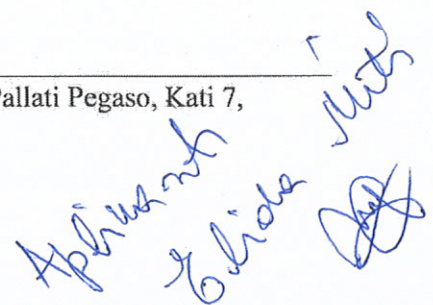 Pallati Pegaso, Kati 7,
Aplikanti
Elida